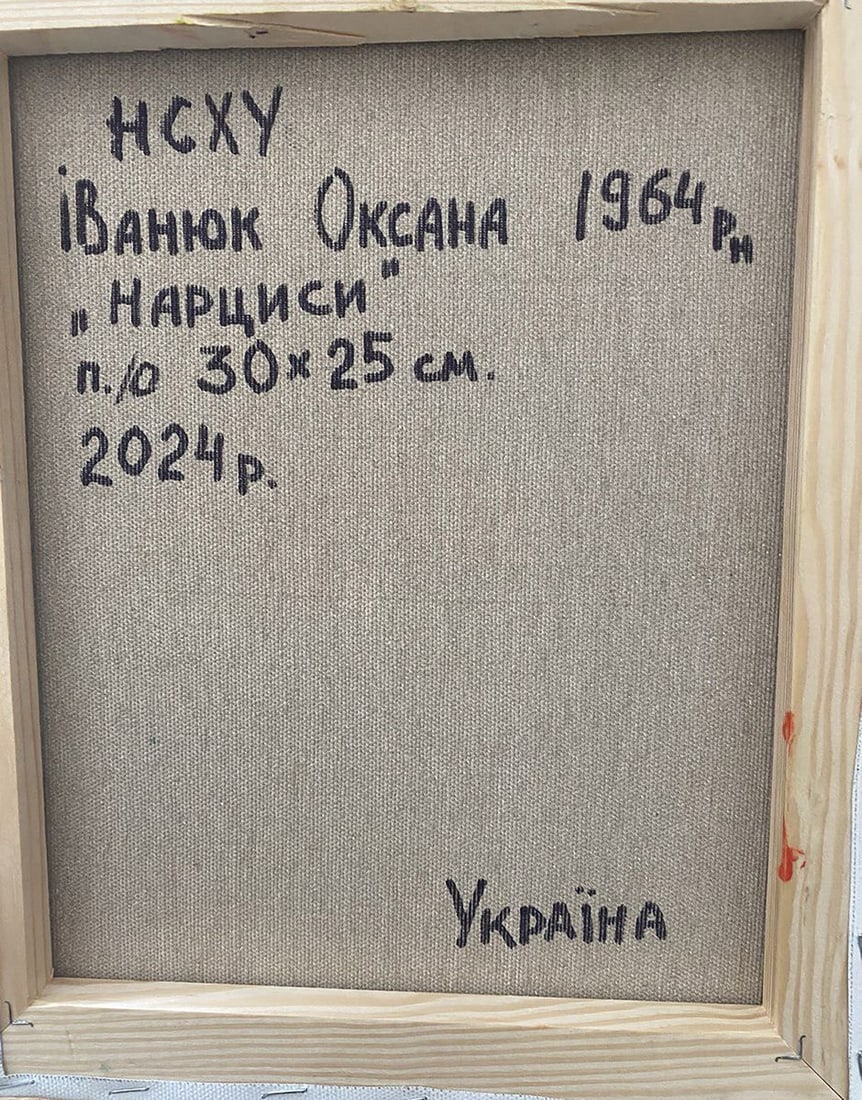 НСХУ
Іванюк Оксана 1964 рн
„Нарциси"
п./о 30х25 см.
2024 р.
Україна